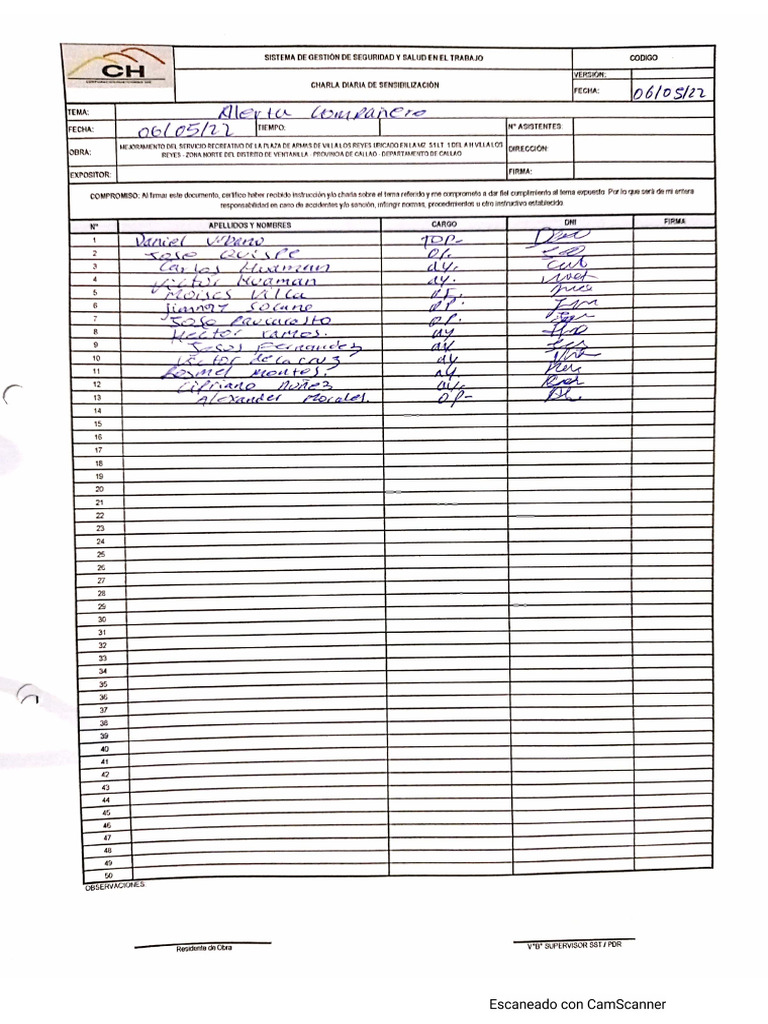 CH
SISTEMA DE GESTIÓN DE SEGURIDAD Y SALUD EN EL TRABAJO
CODIGO
CHARLA DIARIA DE SENSIBILIZACIÓN
VERSIÓN:
FECHA: 06/05/22
TEMA: Alerta Compañero
FECHA: 06/05/22 TIEMPO: N° ASISTENTES:
OBRA: MEJORAMIENTO DEL SERVICIO RECREATIVO DE LA PLAZA DE ARMAS DE VILLA LOS REYES UBICADO EN LA MZ. 51 LT. 1 DEL A.H VILLA LOS
REYES - ZONA NORTE DEL DISTRITO DE VENTANILLA - PROVINCIA DE CALLAO - DEPARTAMENTO DE CALLAO
DIRECCIÓN:
EXPOSITOR: FIRMA:
COMPROMISO: Al firmar este documento, certifico haber recibido instrucción y/o charla sobre el tema referido y me comprometo a dar fiel cumplimiento al tema expuesto. Por lo que será de mi entera
responsabilidad en caso de accidentes y/o sanción, infringir normas, procedimientos u otro instructivo establecido.
N° APELLIDOS Y NOMBRES CARGO DNI FIRMA
1 Daniel Urbano
2 Jose Quispe OP.
3 Carlos Huaman ay.
4 Victor Huaman ay.
5 Moises Villa OP.
6 Jimmy OP.
7 Jose OP.
8 Hector Ramos. ay
9 Jesus Fernandez ay
10 Victor de la cruz ay
11 Rosmel Montes. ay.
12 Cipriano Nuñez
13 Alexander Morales. OP-
14
15
16
17
18
19
20
21
22
23
24
25
26
27
28
29
30
31
32
33
34
35
36
37
38
39
40
41
42
43
44
45
46
47
48
49
50
OBSERVACIONES:
Residente de Obra
V°B° SUPERVISOR SST / PDR
Escaneado con CamScanner